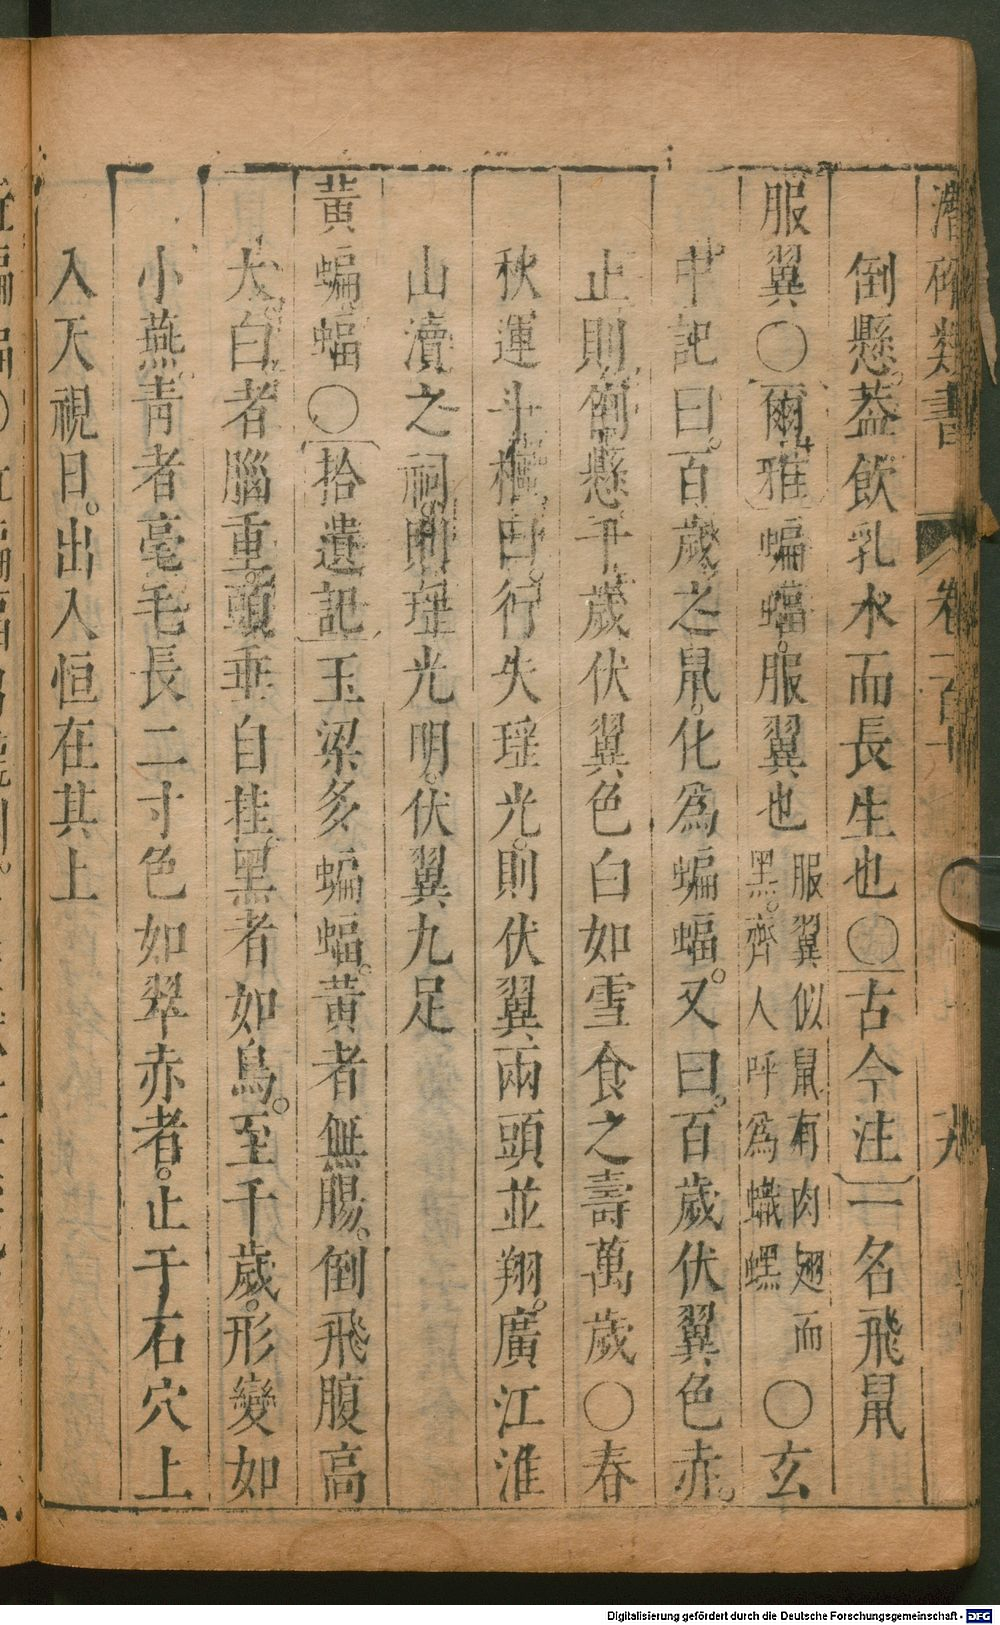 潛確類書 卷一百十 九
倒懸。葢飲乳水而長生也〇古今注一名飛鼠
服翼〇爾雅蝙蝠。服翼也 服翼似鼠有肉翅而黑。齊人呼為蟙䘃 〇玄
中記曰。百歲之鼠。化為蝙蝠。又曰。百歲伏翼色赤。
止則倒懸千歲伏翼色白如雪食之壽萬歲〇春
秋運斗樞曰。行失瑶光。則伏翼兩頭並翔。廣江淮
山瀆之祠。則瑶光明。伏翼九足
黃蝙蝠〇拾遺記玉梁多蝙蝠。黃者無腸。倒飛腹高
大。白者腦重。頭垂自挂黑者如鳥。至千歲。形變如
小燕。青者毫毛長二寸色如翠赤者。止于石穴上
入天視日。出入恒在其上
Digitalisierung gefördert durch die Deutsche Forschungsgemeinschaft - DFG